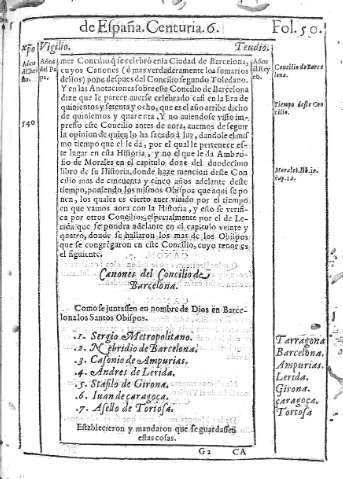 de España. Centuria. 6. Fol. 50.
Xpo Vigilio. Teudio.
Años de Christo.
Años del Papa.
Años del Rey
mer Concilio q̃ se celebrò en la Ciudad de Barcelona,
cuyos Canones (ò mas verdaderamente los sumarios
dellos) pone despues del Concilio segundo Toledano.
Y en las Anotaciones sobre este Concilio de Barcelona
dize que le parece auerse celebrado casi en la Era de
quinientos y setenta y ocho, que es el año arriba dicho
de quinientos y quarenta. Y no auiendose visto impresso
este Concilio antes de aora, auemos de seguir
la opinion de quien lo ha sacado a luz, dandole el mismo
tiempo que el le dà, por el qual le pertenece este
lugar en esta Historia, y no el que le da Ambrosio
de Morales en el capitulo doze del duodecimo
libro de su Historia, donde haze mencion deste Concilio
mas de cincuenta y cinco años adelante deste
tiempo, poniendo los mismos Obispos que aqui se ponen,
los quales es cierto auer viuido por el tiempo
en que vamos aora con la Historia, y esto se verifica
por otros Concilios, especialmente por el de Lerida
que se pondra adelante en el capitulo veinte y
quatro, donde se hallaron los mas de los Obispos
que se congregaron en este Concilio, cuyo tenor es
el siguiente.
540
Concilio de Barcelona.
Tiempo deste Concilio.
Morales lib. 12. cap. 12.
Canones del Concilio de
Barcelona.
Como se juntessen en nombre de Dios en Barcelona
los Santos Obispos.
.1. Sergio Metropolitano. Tarragona
.2. Nebridio de Barcelona. Barcelona.
.3. Casonio de Ampurias. Ampurias.
.4. Andres de Lerida. Lerida.
.5. Stafilo de Girona. Girona.
.6. Iuan de çaragoça. çaragoça.
.7. Asello de Tortosa. Tortosa
Establecieron y mandaron que se guardassen
estas cosas.
G2 CA